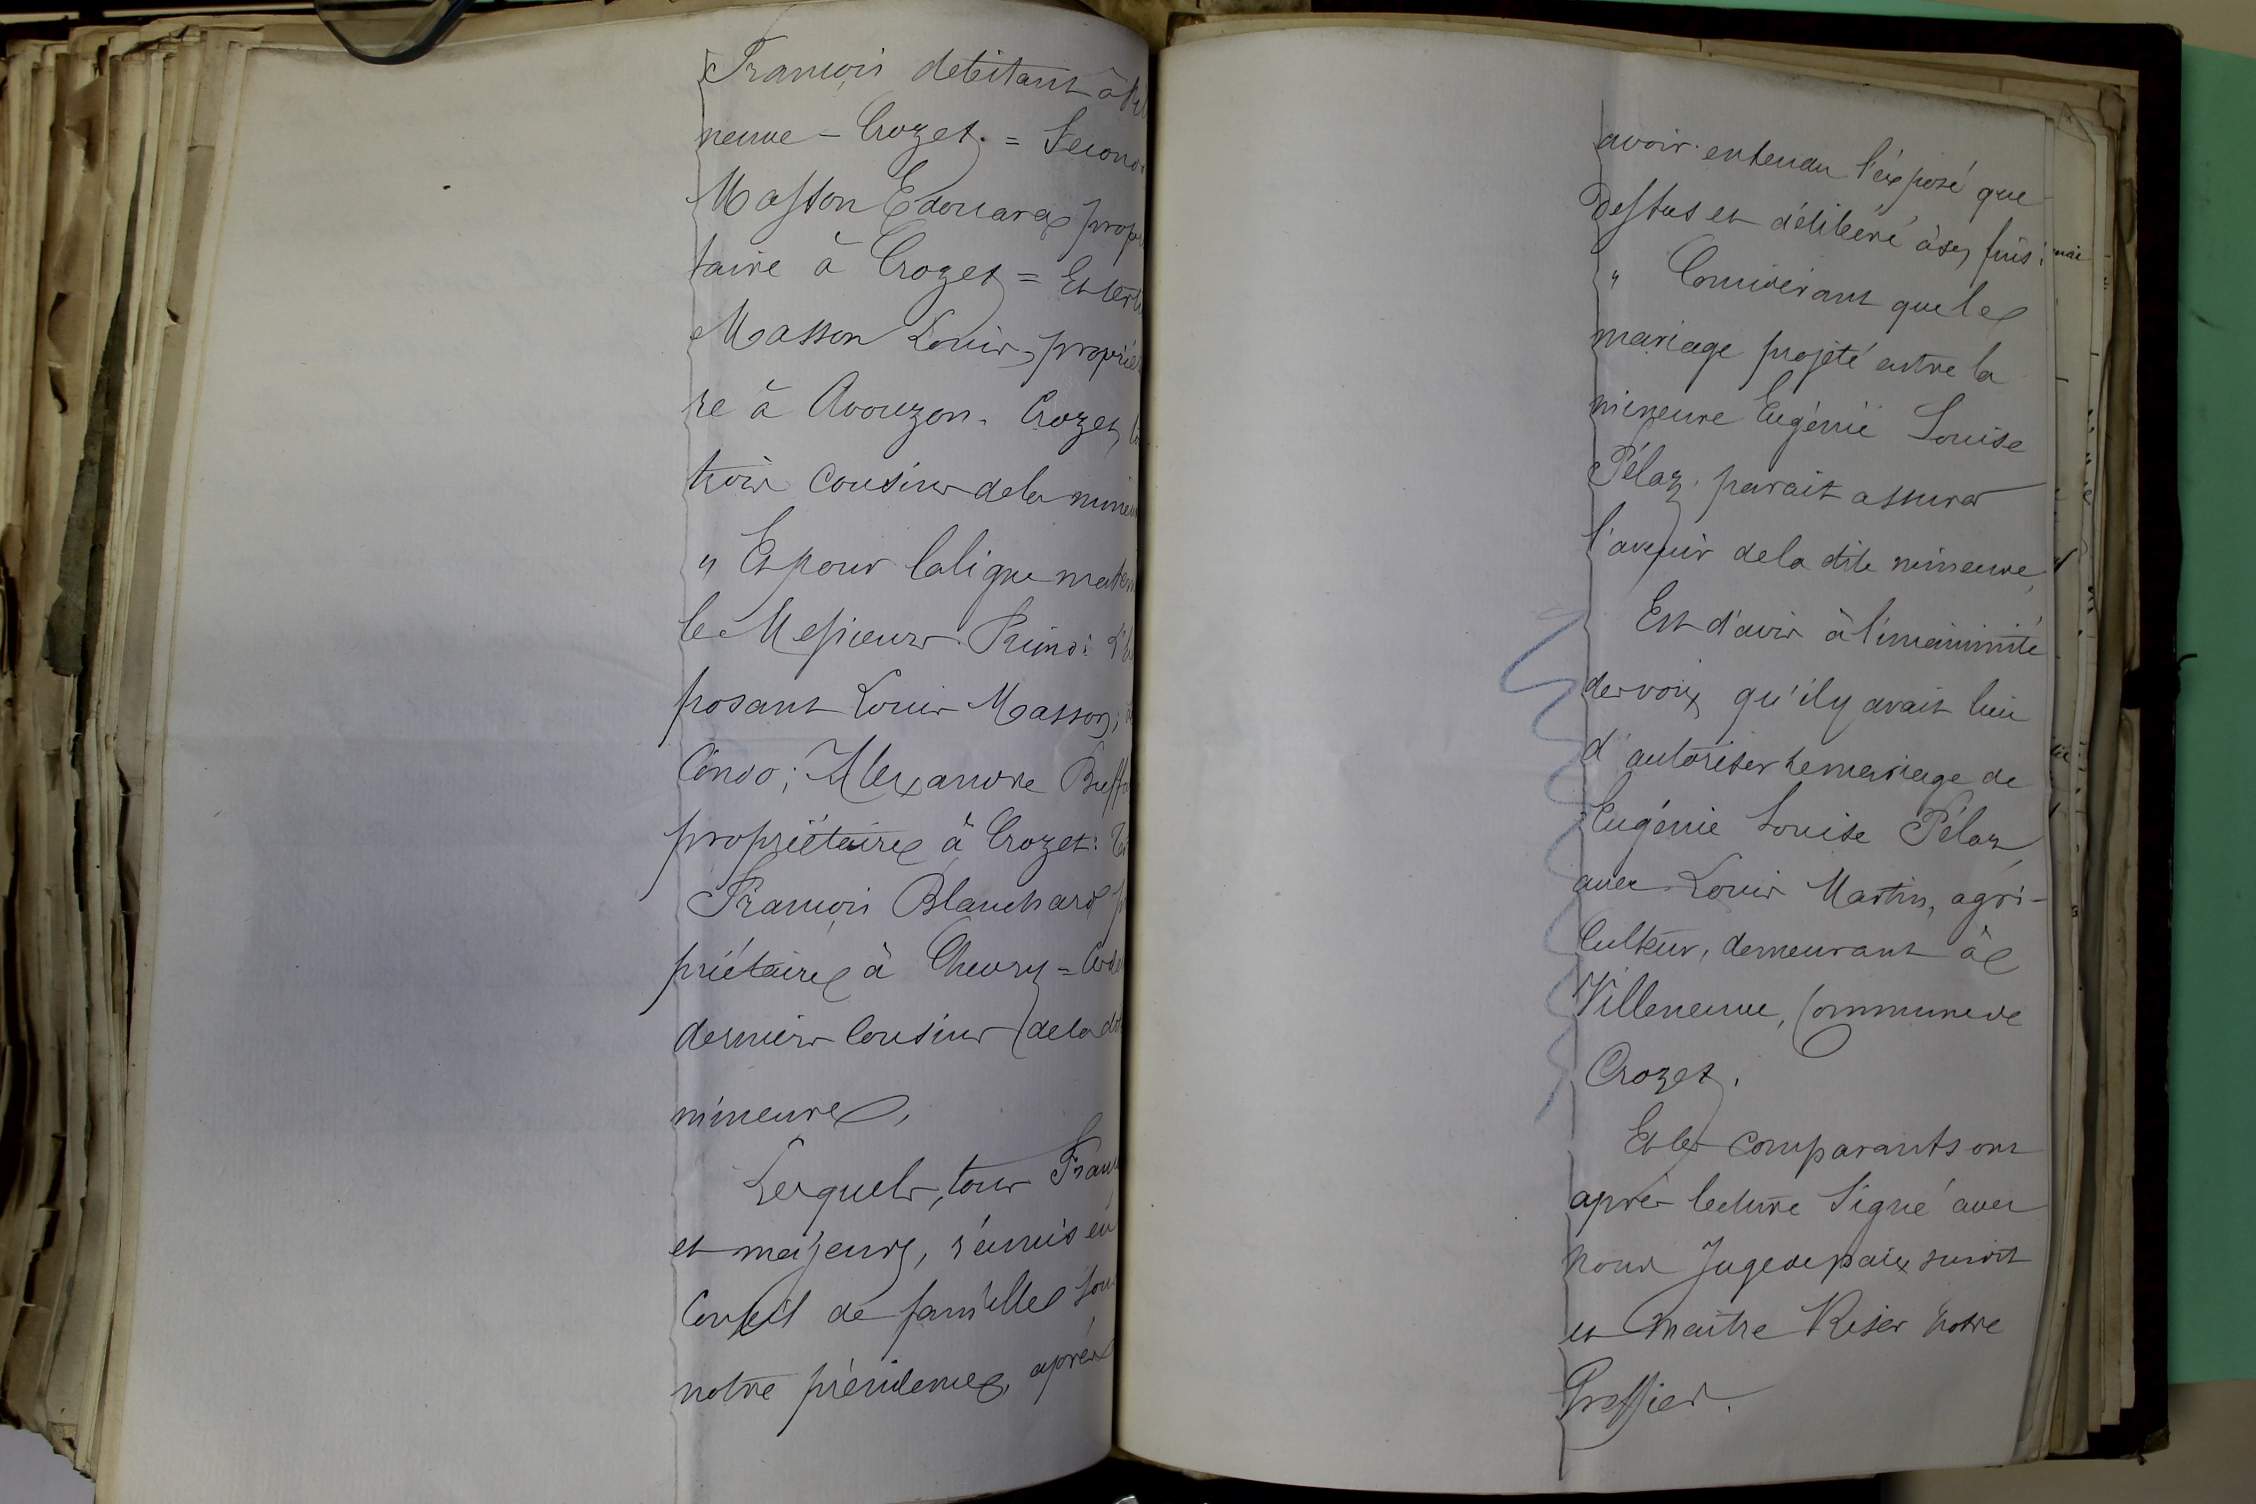 François débitant à Vil
neuve-Crozet. = Secondo
Masson Edouard propr
taire à Crozet = Et tert
Masson Louis, propriét
re à Avouzon-Crozet,
trois cousins de la mineu
" Et pour la ligne matern
le Messieurs: Primo: L'ex
posant Louis Masson;
Condo; Alexandre Buff
propriétaire à Crozet:
François Blanchard p
priétaire à Chevry = Ces de
derniers cousins de la dit
mineure,
Lesquels, tous Franç
et majeurs, réunis en
Conseil de famille sou
notre présidence, après
avoir entendu l'exposé que
dessus et délibéré à ses fins:
" Considérant que le
mariage projeté entre la
mineure Eugénie Louise
Pélaz. parait assurer
l'avenir de la dite mineure,
Est d'avis à l'unanimité
des voix, qu'il y avait lieu
d'autoriser le mariage de
Eugénie Louise Pélaz,
avec Louis Martin, agri-
culteur, demeurant à
Villeneuve, Commune de
Crozet.
Et les comparants ont
après lecture Signé avec
nous Juge de paix susdit
et Maître Riser notre
Greffier.